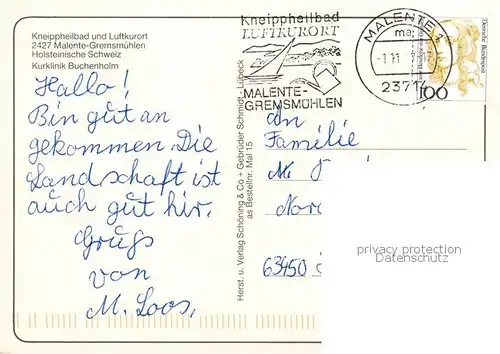 Kneippheilbad und Luftkurort
2427 Malente-Gremsmühlen
Holsteinische Schweiz
Kurklinik Buchenholm
Hallo!
Bin gut an
gekommen. Die
Landschaft ist
auch gut hir.
Gruß
von
M. Loos,
Herst. u. Verlag Schöning & Co + Gebrüder Schmidt - Lübeck
as Bestellnr. Mal 15
Kneippheilbad
LUFTKURORT
MALENTE-
GREMSMÜHLEN
MALENTE 1
ma
23714
Deutsche Bundespost
100
An
Familie
M.
Nor
63450
privacy protection
Datenschutz